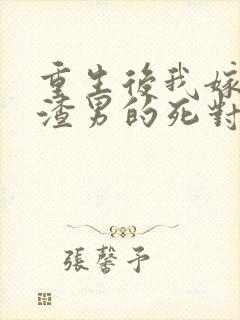 重生後我嫁
渣男的死對
張馨予